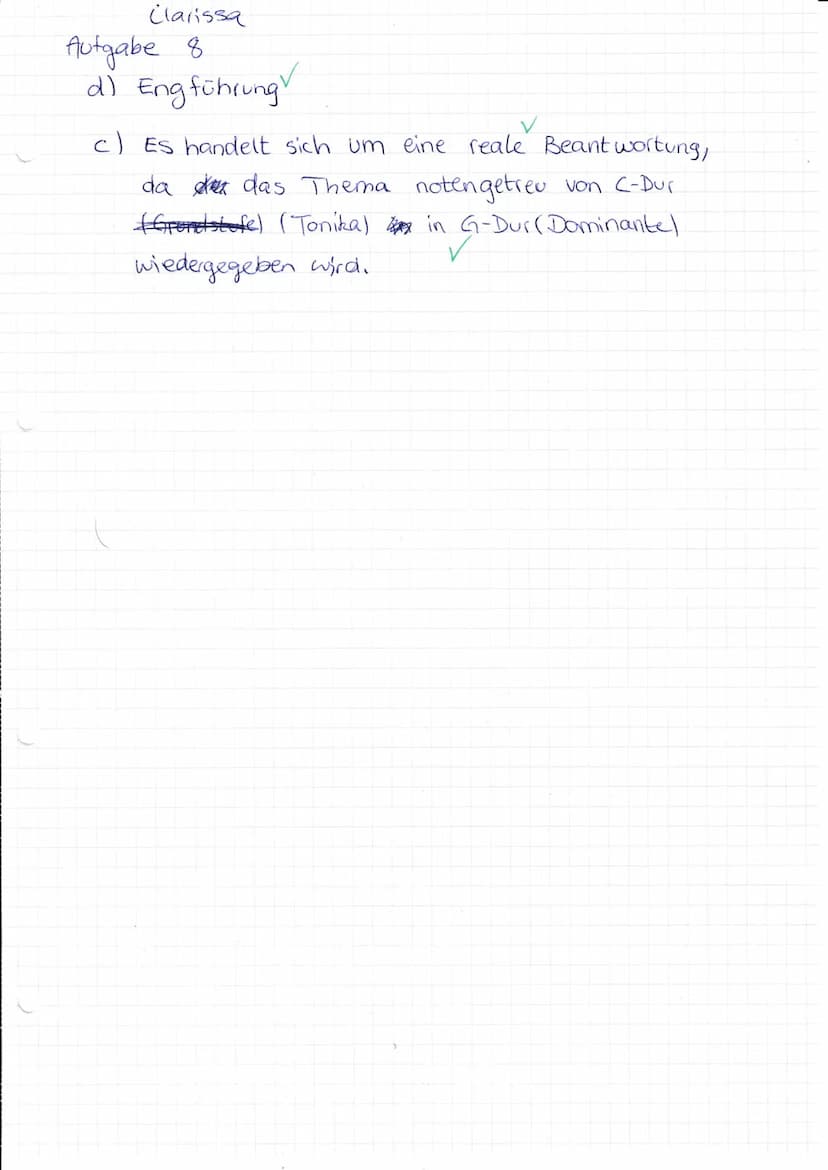 Clarissa
Aufgabe 8
d) Engführung
c) Es handelt sich um eine reale Beantwortung,
da das Thema notengetreu von C-Dur
(Grundstufe) (Tonika) in G-Dur (Dominante)
wiedergegeben wird.